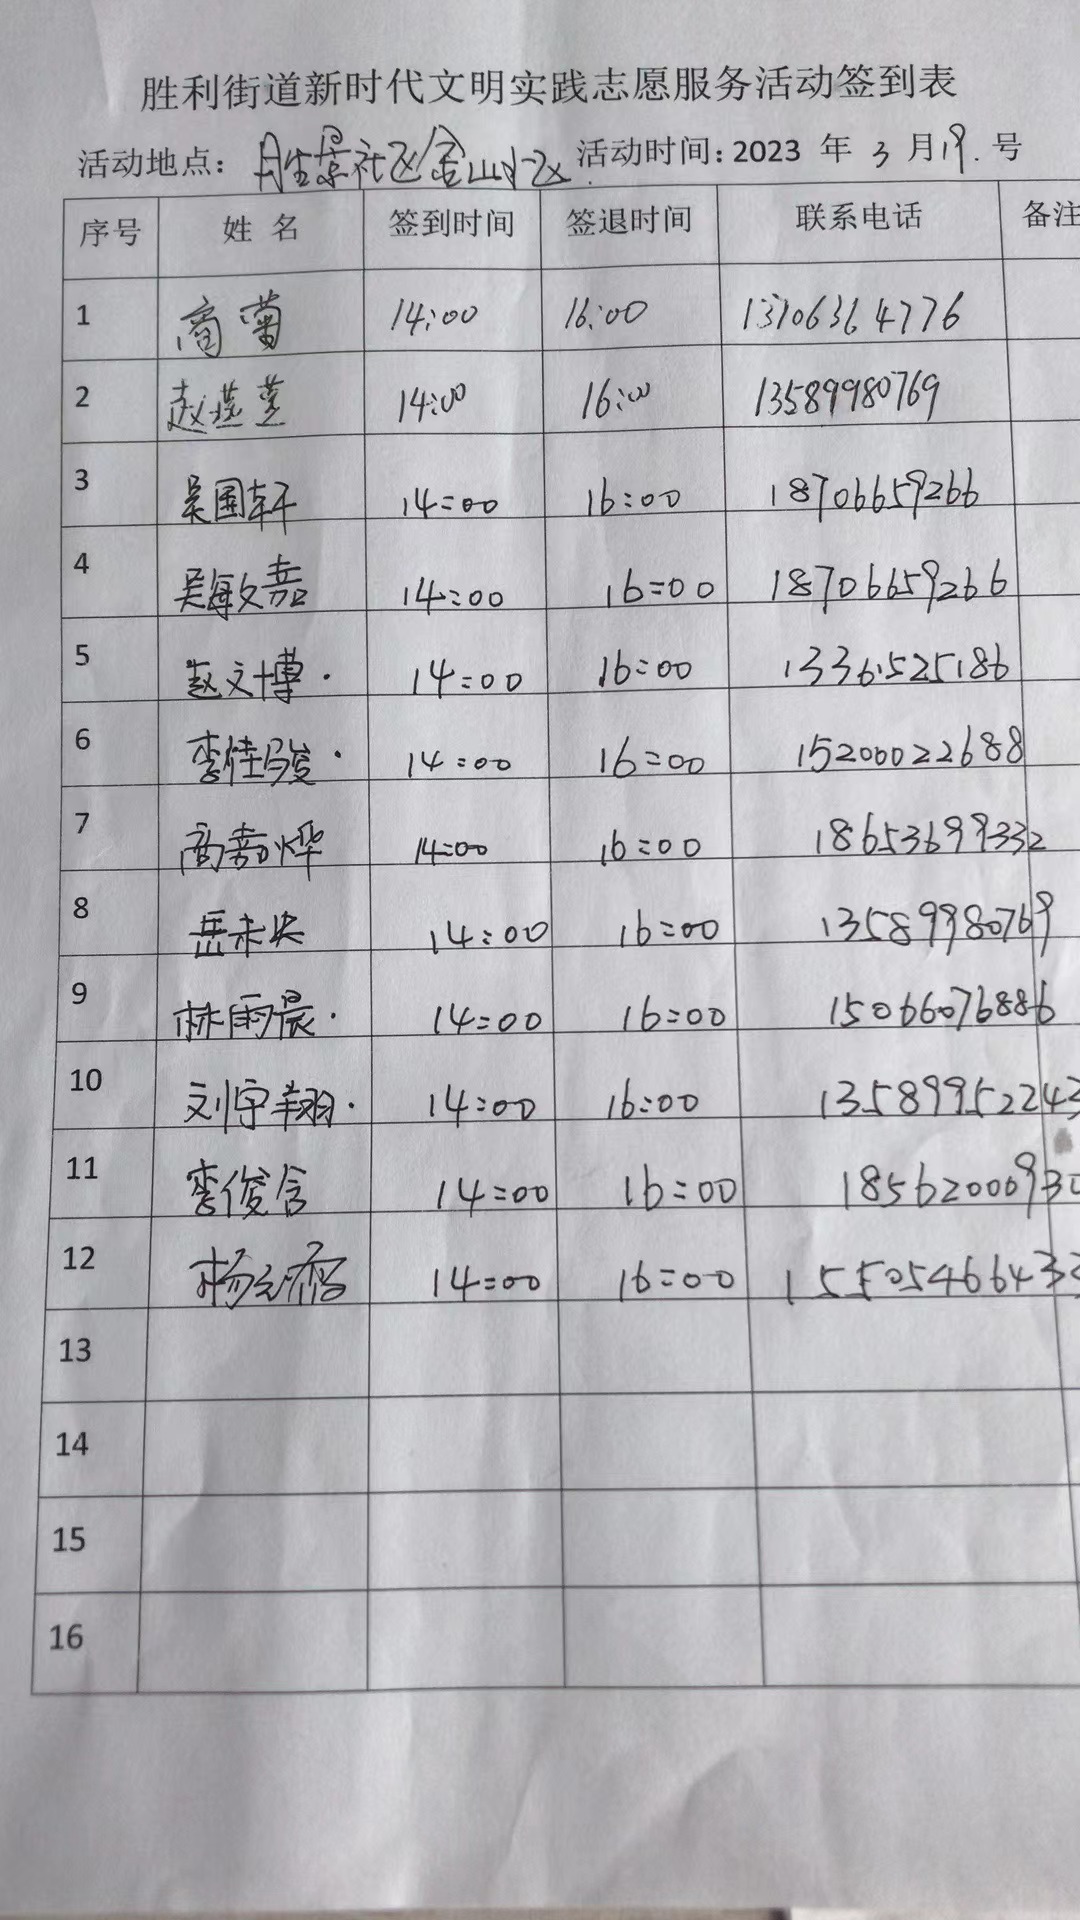 胜利街道新时代文明实践志愿服务活动签到表
活动地点：胜景社区金山小区 活动时间：2023 年 3 月19. 号
序号 姓 名 签到时间 签退时间 联系电话 备注
1 商菊 14:00 16:00 13706364776
2 赵 14:00 16:00 13589980769
3 吴国轩 14:00 16:00 18706659266
4 吴敏嘉 14:00 16:00 18706659266
5 赵文博. 14:00 16:00 13361525186
6 李佳骏. 14:00 16:00 15200022688
7 商嘉烨 14:00 16:00 18653699332
8 岳未央 14:00 16:00 13589980769
9 林雨晨. 14:00 16:00 15066076886
10 刘宇翔. 14:00 16:00 13589952243
11 李俊含 14:00 16:00 18562000930
12 杨 14:00 16:00 1550546643
13
14
15
16